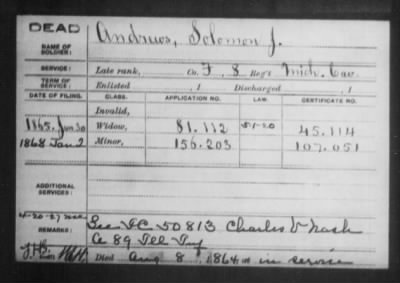 DEAD
NAME OF SOLDIER: Andrews, Solomon J.
SERVICE: Late rank, Co. F, 8 Reg't Mich. Cav.
TERM OF SERVICE: Enlisted , 1 Discharged , 1
DATE OF FILING. CLASS. APPLICATION NO. LAW. CERTIFICATE NO.
Invalid,
1865. Jun 30 Widow, 81.112 51-20 45.114
1868 Jan 2 Minor, 156.203 107.051
ADDITIONAL SERVICES:
4-20-27
REMARKS: See VC 50813 Charles V Nash
Co 89 Ill Inf
Died Aug 8, 1864 at in service